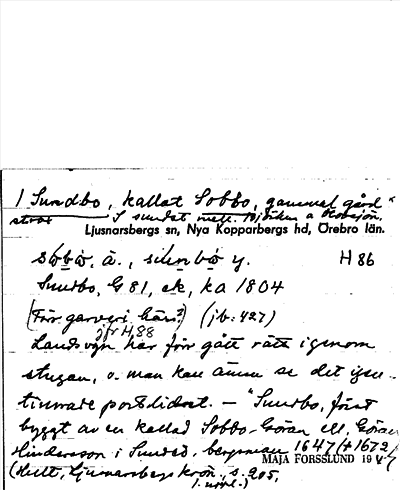 1 Sundbo, kallat Sobbo, gammal gård
strax I sundet mell. Björken a Olovsjön.
Ljusnarsbergs sn, Nya Kopparbergs hd, Örebro län.
söbo, ä., sunbo y. H 86
Sundbo, G 81, ek, ka 1804
(För garveri här?) (jb: 427)
jfr H,88
Landsvgn har för gått rätt igenom
stugan, o. man kan ännu se det igen-
timrade portlidret. – "Sundbo, först
byggt av en kallad Sobbo-Göran ell. Göran
Hindersson i Sunded, bergsman 1647 (+1672)
MAJA FORSSLUND 19
(Hult, Ljusnarsbergs krön., s. 205,
1. uppl.)